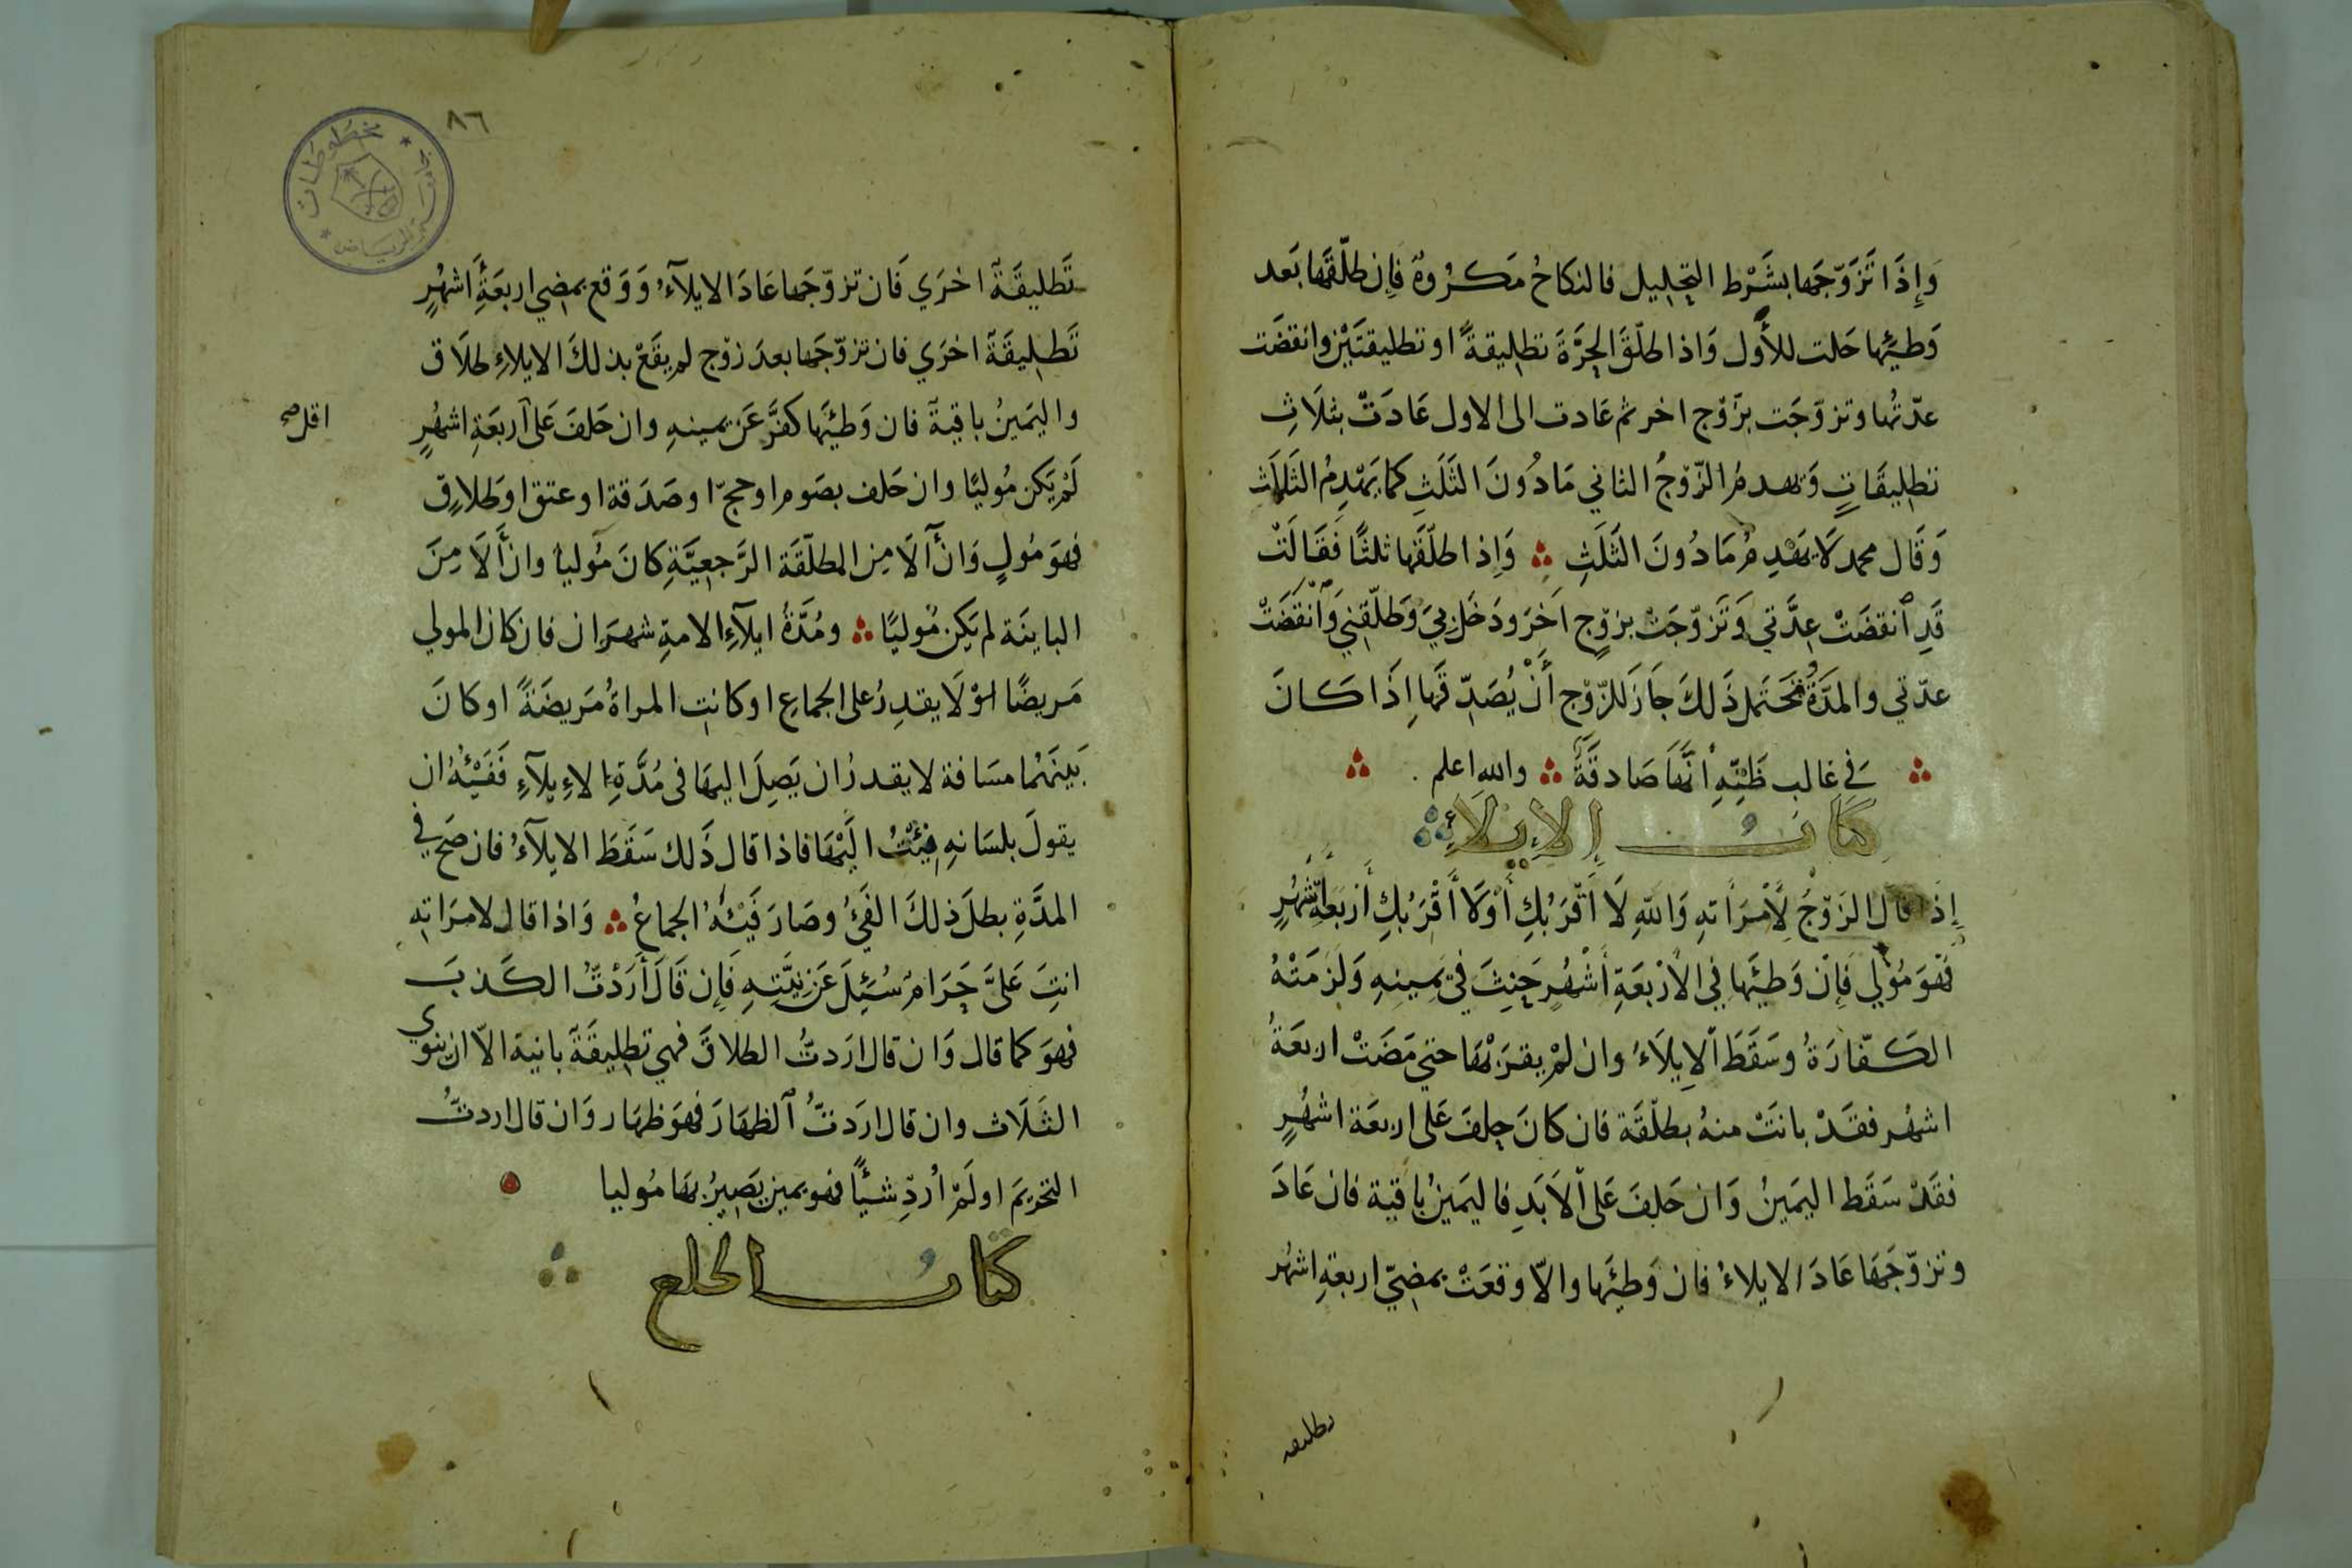 وَإِذَا تَزَوّجَها بشَرْط التحِليل فالنكاحُ مَكرُوهٌ فَإِن طلّقَها بَعد
وَطئِها حَلت للأَول وَاذا طلّقَ الحِرَّةَ تطليقةً او تطليقتَيْن وانقضَت
عدّتُها وتزوّجَت بزَوْج اخر ثم عَادت الى الاول عَادَتْ بثلَاثِ
تطليقَاتٍ وَيهدمُ الزّوْجُ الثاني مَا دُونَ الثَلَثِ كما يَهْدِمُ الثَلَاثَ
وَقَال محمد لَا يَهْدِمُ مَا دُونَ الثَلَثِ وَاِذا طلّقَها ثلثًا فَقَالَتْ
قَدِ اْنقضَتْ عِدَّتي وَتَزَوّجَتْ بزوْجٍ اَخِرَ ودَخَلَ بِيَ وَطلّقِني وَاْنْقَضَتْ
عدّتي والمدَّةُ تحَتَمل ذَلكَ جَازَ للزّوْج أَنْ يُصَدِّقَها اِذَا كَانَ
فيِ غالب ظَنِّهِ أنّهَا صَادقَةٌ واللهِ اعلم
كتابُ الإيلاءِ
إِذَا قالَ الزَوْجُ لأمْرَأتهِ وَاللّهِ لَا أَقْرَبُكِ أَوْ لَا أَقْرَبُكِ أَرْبَعَةَ أَشْهُرٍ
فَهْوَ مُوْلي فَإِنْ وَطئَها فيِ الأَرْبعَةِ أَشْهُرٍ حِنِثَ في يَمِينهِ وَلَزمَتْهُ
الكَفّارَةُ وسَقَطَ اْلإيلَاءُ وان لمْ يقرَبْهَا حتي مَضَتْ اربعَةُ
اشهُر فقَدْ بانَتْ منهُ بطلّقَة فان كانَ حِلفَ عَلى اربعَة اشهُرٍ
فقَدْ سَقَط اليَمينُ وَان حَلفَ عَلى اْلاَبَدِ فاليَمينُ باقية فان عَادَ
وتزوّجَهَا عَادَ الايلاءُ فان وَطئَها والاّ وقعَتْ بمضِيّ اربعةِ اشهُر
تطليقه
٨٦
مخطوطات
الرياض
تَطليقَةَ اخرَي فَان تزوّجَها عَادَ الايلآءُ وَوَقع بمضِي اربعَةِ أَشهُرٍ
تَطليقَةَ اخرَي فان تزوّجَها بعدَ زوْج لم يقَعْ بذلكَ الايلاءِ طلَاق
واليَمينُ باقيةَ فان وَطئَها كفَّرَ عَن يمينهِ وان حَلفَ عَلى اَربعَةِ اشهُرٍ
اقل صح
لَمْ يَكن مُوليًا وان حَلف بصَوم او حجّ او صَدَقة او عتق او طلاقٍ
فهوَ مُولٍ وَانْ آلَا مِن المطلّقَة الرَّجعِيَّةِ كانَ مُوليا وان أَلَا مِنَ
الباينَة لم يَكن مُوليًا ومُدَّةُ ايلآءِ الامةِ شهرَان فان كان المولي
مَريضًا اوْ لَا يقدِرُ على الجماعِ او كانتِ المراةُ مَريضَةً او كانَ
بَينَهُما مسَافة لا يقدرُ ان يَصِلَ اليهَا فى مُدَّةِ الاءِيلآءِ فَفَيْئُهُ ان
يقولَ بلسَانهِ فِئْتُ اليْهَا فاذا قال ذَلك سَقَطَ الايلآءُ فان صَح في
المدَّةِ بطلَ ذلكَ الفَيُ وصَارَ فَيْئُهُ الجماعُ وَاذا قال لامرَاتهِ
انتِ عَلَىَّ حَرَامٌ سُئِلَ عَن نيَّتهِ فَإِن قَالَ أَرَدْتُ الكَذبَ
فهوَ كما قال وَان قال ارَدتُ الطلاقَ فهي تطليقَةً بانية الاّ ان ينوي
الثَلَاث وان قال ارَدتُ اْلظهَارَ فهوَ ظهَار وَان قال اردتُ
التحريمَ او لَمْ أُردْ شيئًا فهو يمين يَصِيرُ بهَا مُوليا
كتابُ الخلع